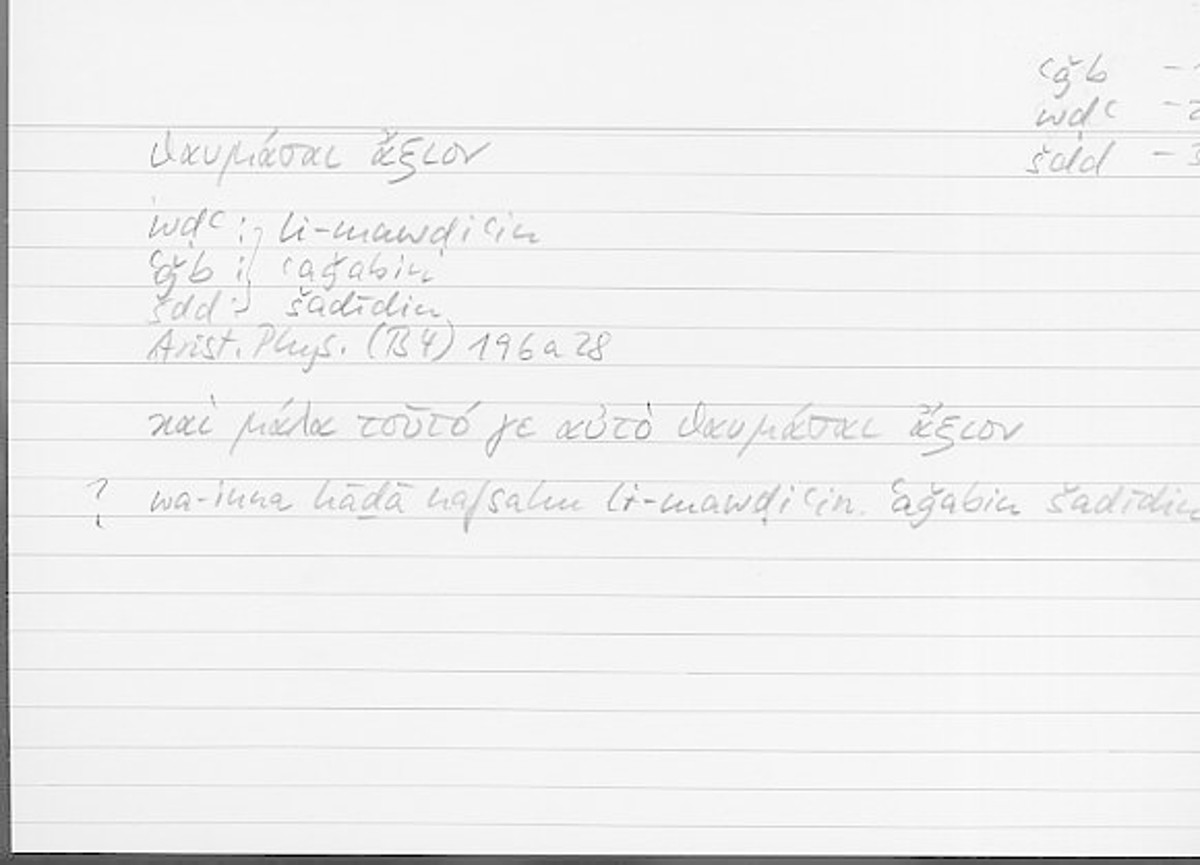 ʿǧb – 1
wḍʿ – 2
šdd – 3
θαυμάσαι ἄξιον
wḍʿ : } li-mawḍiʿin
ʿǧb : } ʿaǧabin
šdd : } šadīdin
Arist. Phys. (B4) 196a28
καὶ μάλα τοῦτό γε αὐτὸ θαυμάσαι ἄξιον
? wa-inna hāḏā nafsahu li-mawḍiʿin ʿaǧabin šadīdin